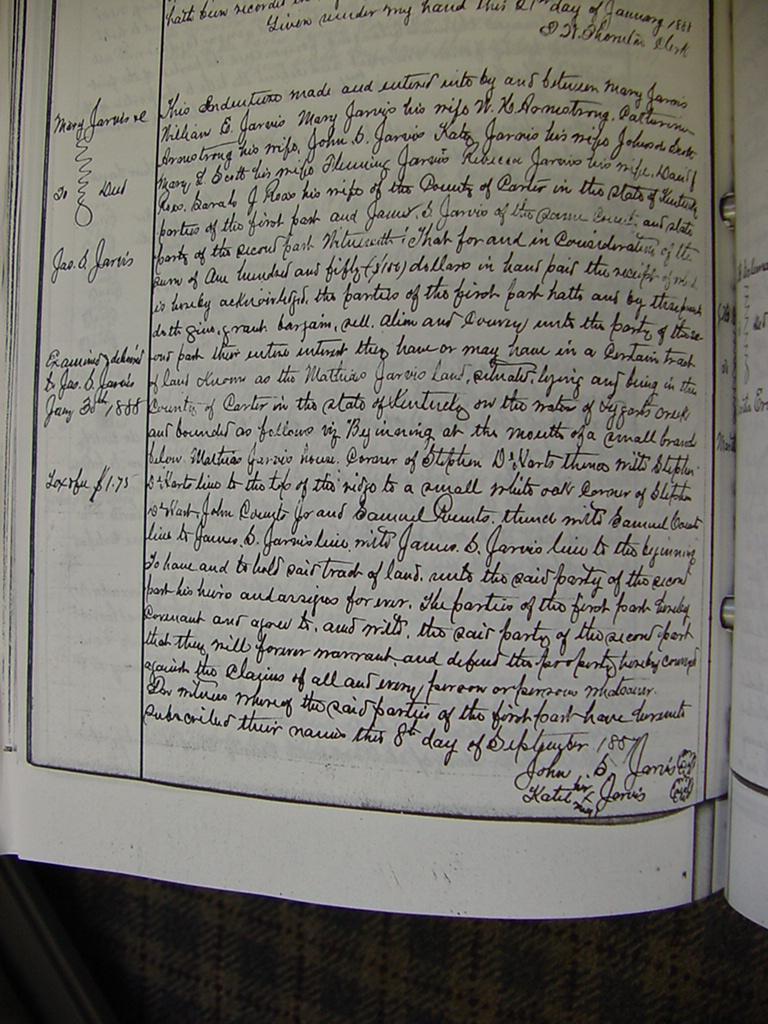 hath been recorded in
Given under my hand this 21st day of January 1888
Clerk
Mary Jarvis &c
To Deed
Jas. S. Jarvis
Examined & delivered
to Jas. S. Jarvis
Jany 30th 1888
Tax & fee $1.75
This Indenture made and entered into by and between Mary Jarvis
William E. Jarvis Mary Jarvis his wife W. K. Armstrong, Catharine
Armstrong his wife, John S. Jarvis Katy Jarvis his wife Johnson Scott
Mary L. Scott his wife Fleming Jarvis Rebecca Jarvis his wife, David
Ross. Sarah J Ross his wife of the County of Carter in the state of Kentucky
parties of the first part and James. S Jarvis of the same County and state
party of the second part Witnesseth: That for and in Consideration of the
sum of One hundred and fifty dollars in hand paid the receipt of which
is hereby acknowledged, the parties of the first part hath and by these presents
doth give, grant bargain, sell, alien and Convey unto the party of the sec
ond part their entire interest they have or may have in a Certain tract
of land known as the Mathias Jarvis Land, situated, lying and being in the
County of Carter in the state of Kentucky on the water of Creek
and bounded as follows viz Beginning at the mouth of a small branch
below Mathias Jarvis house. Corner of Stephen thence with Stephen
line to the top of the ridge to a small white oak Corner of Stephen
John Counts Jr and Samuel Counts, thence with Samuel Counts
line to James. S. Jarvis line, with James. S. Jarvis line to the beginning
To have and to hold said tract of land, unto the said party of the second
part his heirs and assigns forever. The parties of the first part hereby
Covenant and agree to, and with, the said party of the second part
that they will forever warrant and defend the property hereby conveyed
against the Claims of all and every person or persons whatsoever.
In witness whereof the said parties of the first part have hereunto
subscribed their names this 8th day of September 1887
John S Jarvis
Katie her x mark Jarvis